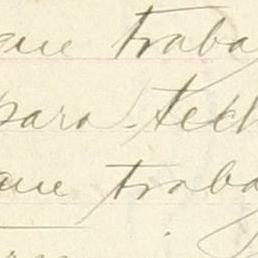 que traba
para tech
que traba